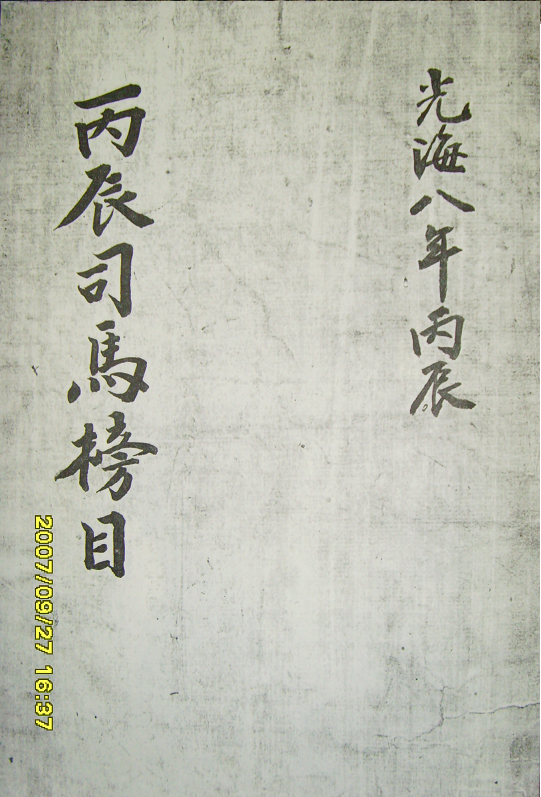 光海八年丙辰
丙辰司馬榜目
2007/09/27 16:37